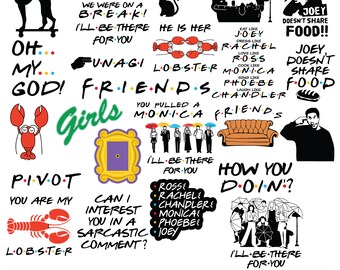 WE WERE ON A
B·R·E·A·K!
I'LL BE THERE
FOR YOU
HE IS HER
L·O·B·S·T·E·R
EAT LIKE
JOEY
DRESS LIKE
R·A·C·H·E·L
LOVE LIKE
ROSS
COOK LIKE
M·O·N·I·C·A
PHOEBE
LAUGH LIKE
CHANDLER
JOEY
DOESN'T SHARE
FOOD!!
OH...
MY...
GOD!
U·N·A·G·I
F·R·I·E·N·D·S
JOEY
DOESN'T
SHARE
FOOD
Girls
YOU PULLED A
M·O·N·I·C·A
F·R·I·E·N·D·S
I'LL BE THERE
FOR YOU
P·I·V·O·T
YOU ARE MY
L·O·B·S·T·E·R
CAN I
INTEREST
YOU IN A
SARCASTIC
COMMENT?
ROSS!
RACHEL!
CHANDLER!
MONICA!
PHOEBE!
JOEY
HOW YOU
D·O·I·N'?
I'LL BE THERE
FOR YOU